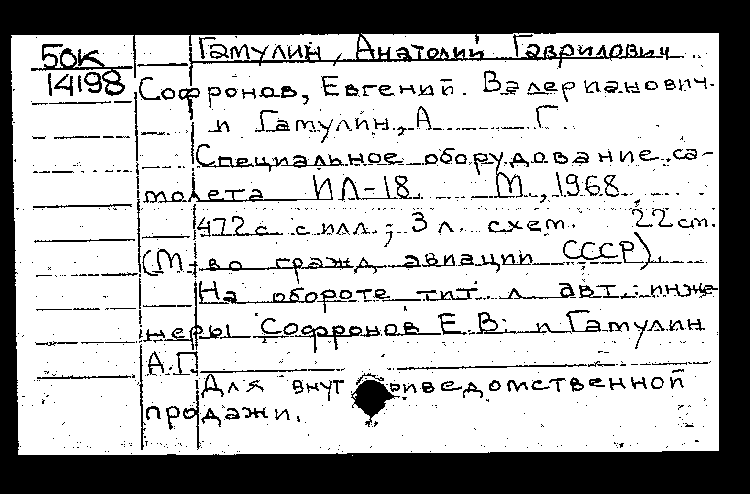 50К Гамулин, Анатолий Гаврилович
14198 Софронов, Евгений. Валерианович.
и Гамулин, А Г.
Специальное оборудование са-
молета ИЛ-18. М., 1968.
472 с с илл.; 3 л. схем. 22 см.
(М-во гражд авиации СССР).
На обороте тит л авт.: инже
неры Софронов Е.В. и Гамулин
А.Г.
Для внут риведомственной
продажи.